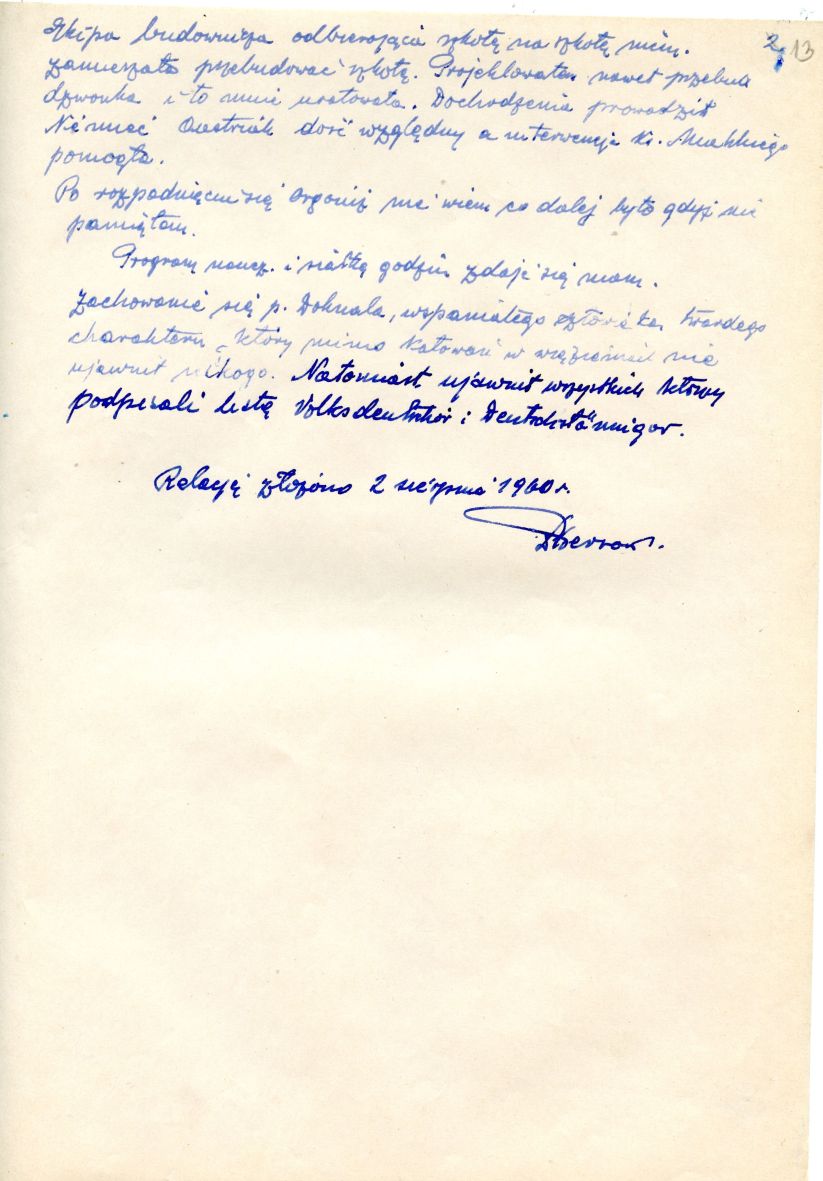 2, 13
Ekipa budownicza odbierająca szkołę na szkołę niem.
zamierzała przebudować szkołę. Projektowałem nawet przebud
dzwonka i to mnie uratowało. Dochodzenia prowadził
Niemiec dość względny a interwencja ks.
pomogła.
Po rozpadnięciu się organiz nie wiem co dalej było gdyż nie
pamiętam.
Program naucz. i siatkę godzin zdaje się mam.
Zachowanie się p. Doknala, wspaniałego człowieka, twardego
charakteru, który mimo katowań w więzieniu nie
ujawnił nikogo. Natomiast ujawnił wszystkich którzy
podpisali listę Volksdeutschów i Deutschstämmigów.
Relację złożono 2 sierpnia 1960 r.